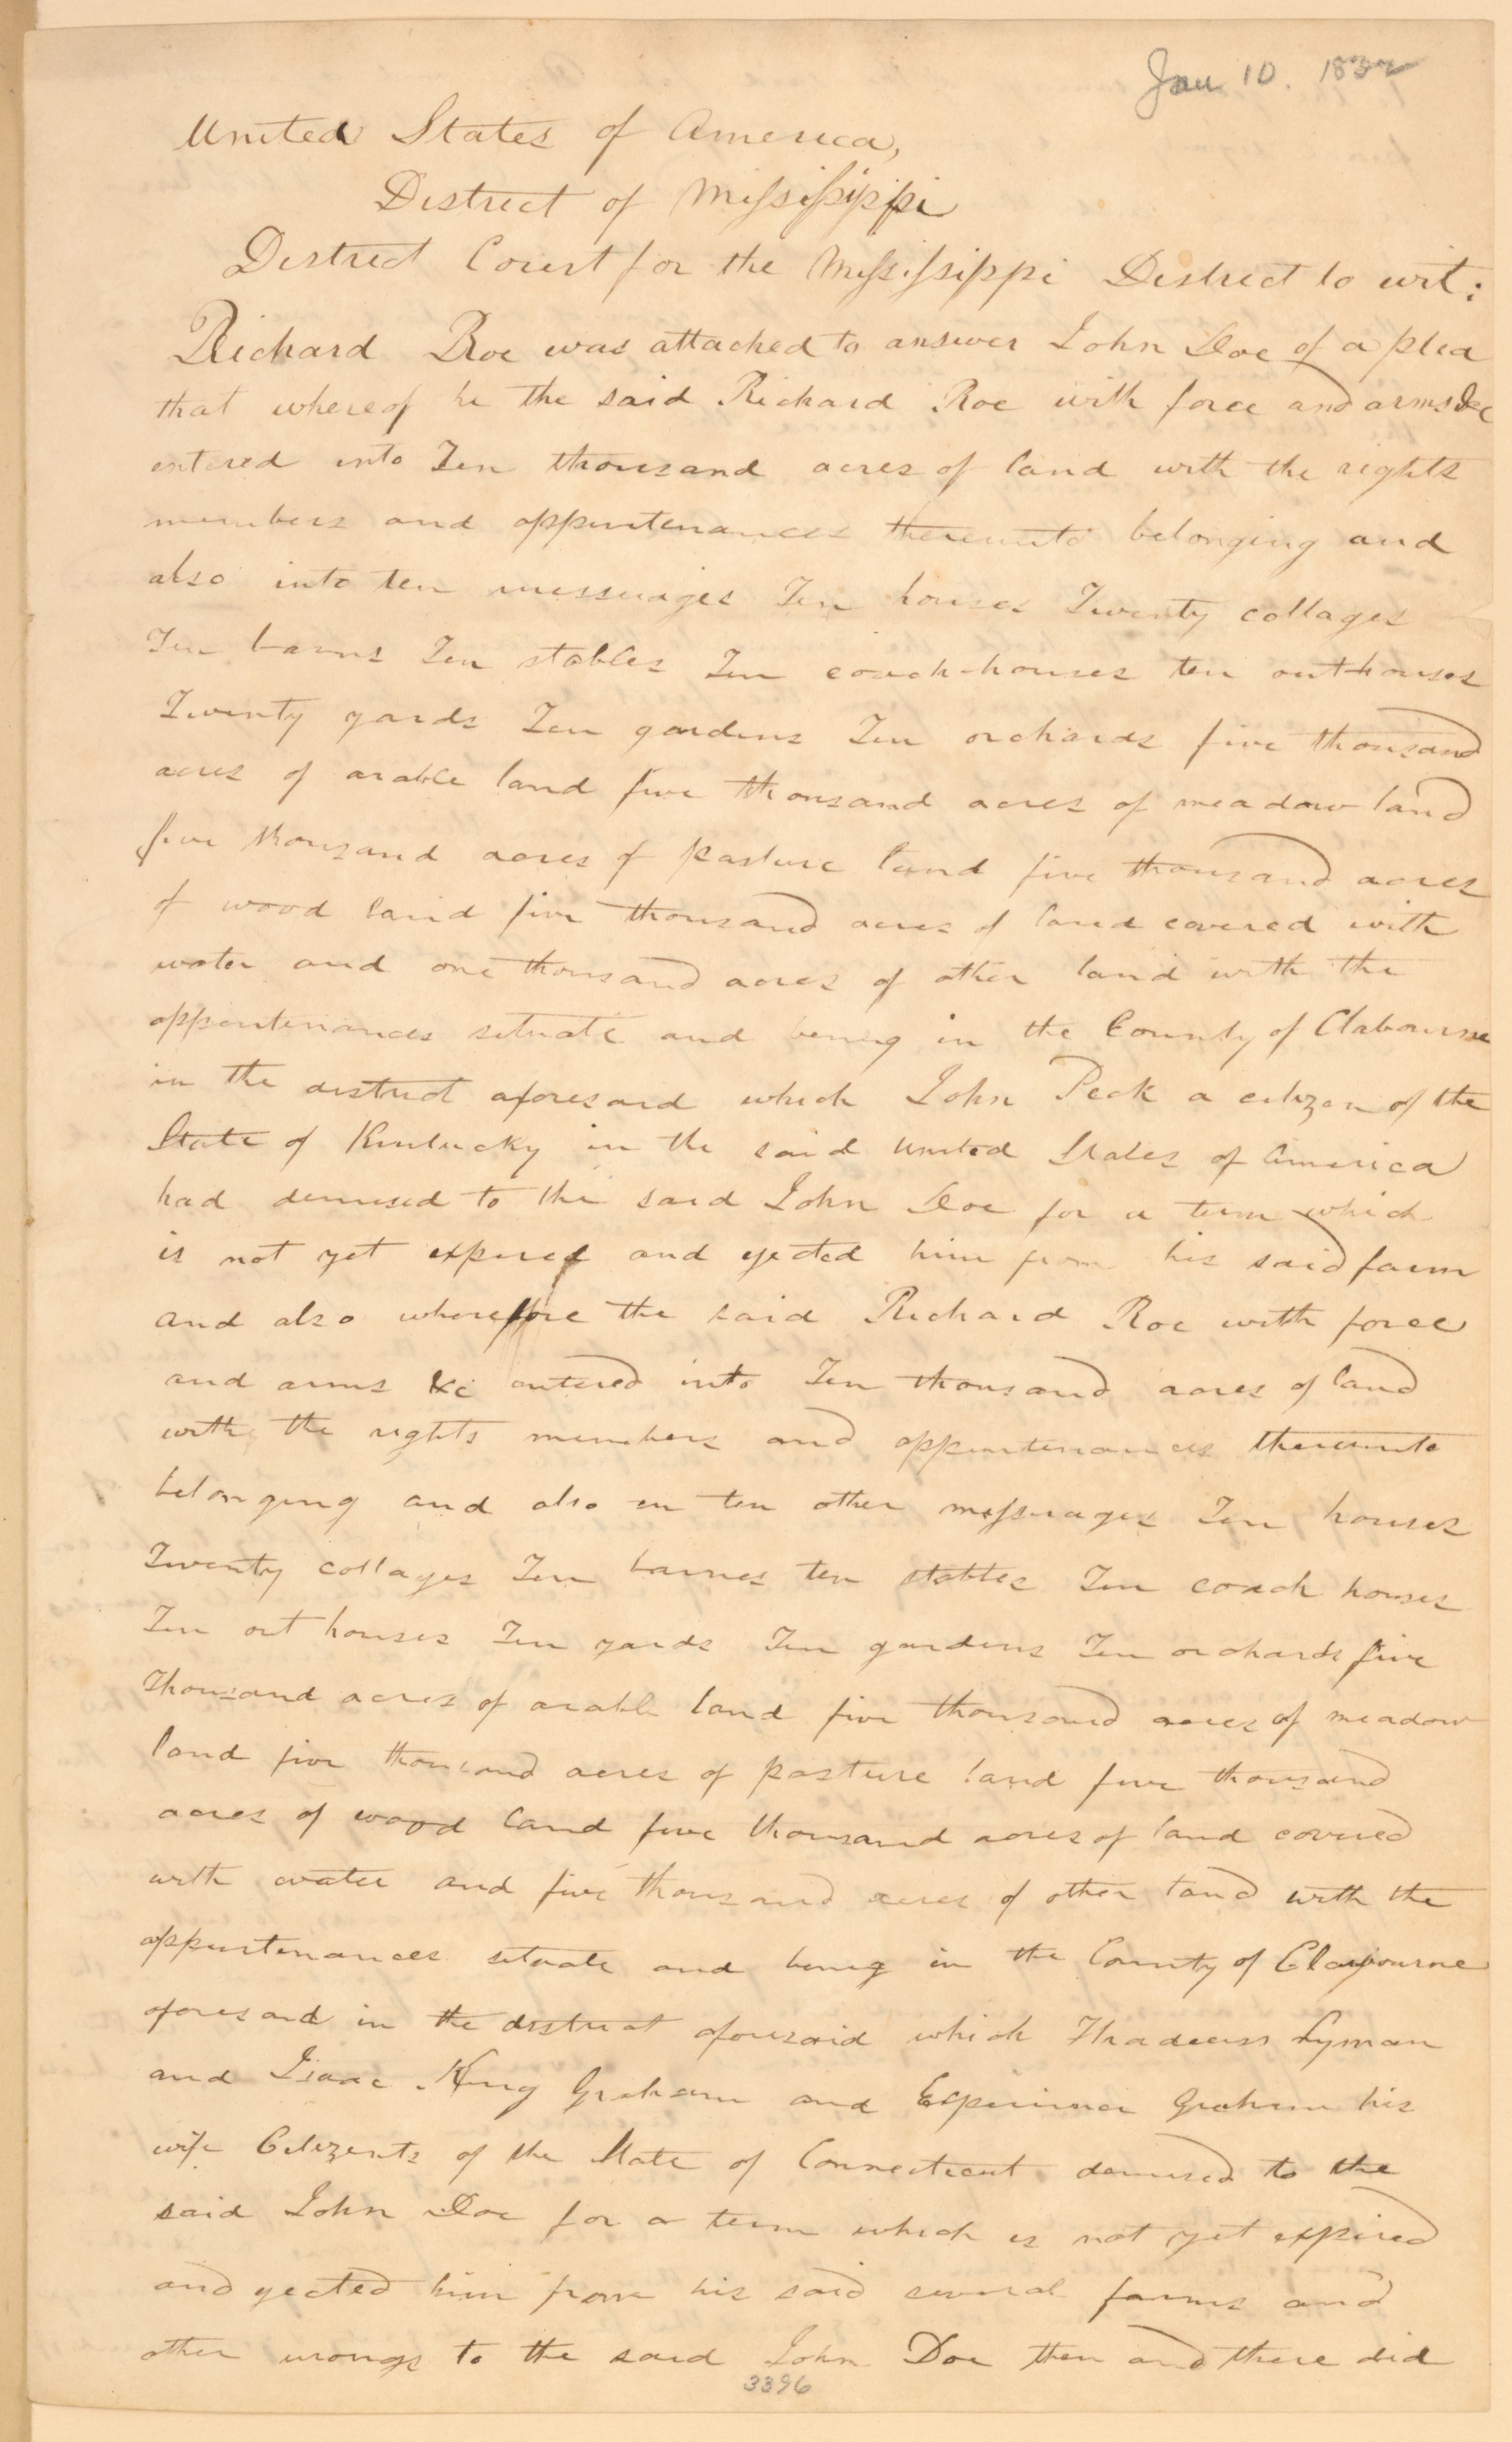 Jan 10. 1832
United States of America,
District of Mississippi
District Court for the Mississippi District to wit:
Richard Roe was attached to answer John Doe of a plea
that whereof he the said Richard Roe with force and arms &c
entered into Ten thousand acres of land with the rights
members and appurtenances thereunto belonging and
also into ten messuages Ten houses Twenty cottages
Ten barns Ten stables Ten coach-houses ten out-houses
Twenty yards Ten gardens Ten orchards five thousand
acres of arable land five thousand acres of meadow land
five thousand acres of pasture land five thousand acres
of wood land five thousand acres of land covered with
water and one thousand acres of other land with the
appurtenances situate and being in the County of Clabourne
in the district aforesaid which John Peck a citizen of the
State of Kentucky in the said United States of America
had demised to the said John Doe for a term which
is not yet expired and ejected him from his said farm
and also wherefore the said Richard Roe with force
and arms &c entered into Ten thousand acres of land
with the rights members and appurtenances thereunto
belonging and also in ten other messuages Ten houses
Twenty cottages Ten barnes ten stables Ten coach houses
Ten out houses Ten yards Ten gardens Ten orchards five
thousand acres of arable land five thousand acres of meadow
land five thousand acres of pasture land five thousand
acres of wood land five thousand acres of land covered
with water and five thousand acres of other land with the
appurtenances situate and being in the County of Claybourne
aforesaid in the district aforesaid which Thadeuss Lyman
and Isaac King Graham and Experience Graham his
wife Citizents of the State of Connecticut demised to the
said John Doe for a term which is not yet expired
and ejected him from his said several farms and
other wrongs to the said John Doe then and there did
3396